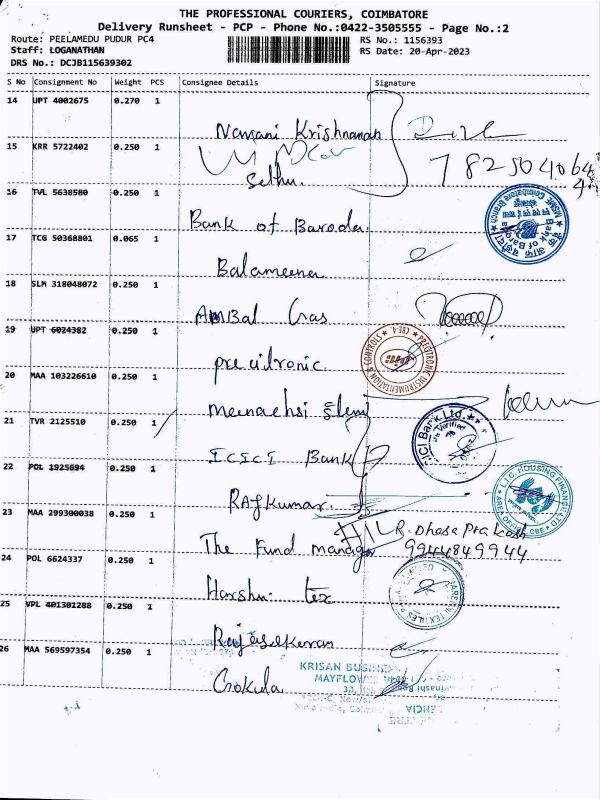 THE PROFESSIONAL COURIERS, COIMBATORE
Delivery Runsheet - PCP - Phone No.:0422-3505555 - Page No.:2
Route: PEELAMEDU PUDUR PC4
RS No.: 1156393
Staff: LOGANATHAN
RS Date: 20-Apr-2023
DRS No.: DCJB115639302
S No Consignment No Weight PCS Consignee Details Signature
14 UPT 4002675 0.270 1
Krishnanah
15 KRR 5722402 0.250 1
Sethu.
16 TVL 5638580 0.250 1
Bank of Baroda.
Bank of Baroda
17 TCG 50368801 0.065 1
Balameena
18 SLM 318048072 0.250 1
Ambal Gas
19 UPT 6024382 0.250 1
precitronic.
PRECITRONIC INSTRUMENTATION & CONTROLS ★ CBE-4 ★
20 MAA 103226610 0.250 1
21 TVR 2125510 0.250 1
ICICI Bank
ICICI Bank Ltd.
22 POL 1925694 0.250 1
Rajkumar.
L.I.C. HOUSING FINANCE LTD
23 MAA 299300038 0.250 1
The Fund manager
9944849944
24 POL 6624337 0.250 1
Harshni tex
25 VPL 401301288 0.250 1
Rajasekaran
26 MAA 569597354 0.250 1
Gokula
KRISAN BUSINE
MAYFLOWE